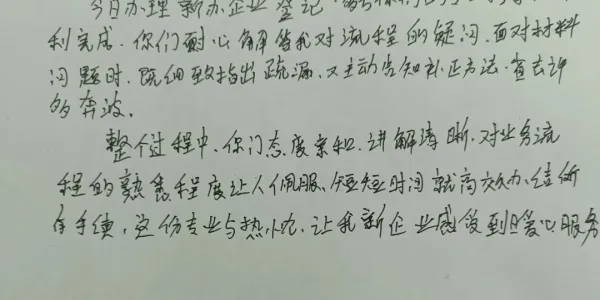 今日办理新办企业登记
利完成。你们耐心解答我对流程的疑问，面对材料
问题时，既细致指出疏漏，又主动告知补正方法，省去许
的奔波。
整个过程中，你们态度亲和，讲解清晰，对业务流
程的熟悉程度让人佩服，短短时间就高效办结所
有手续，这份专业与热忱，让我新企业感受到暖心服务